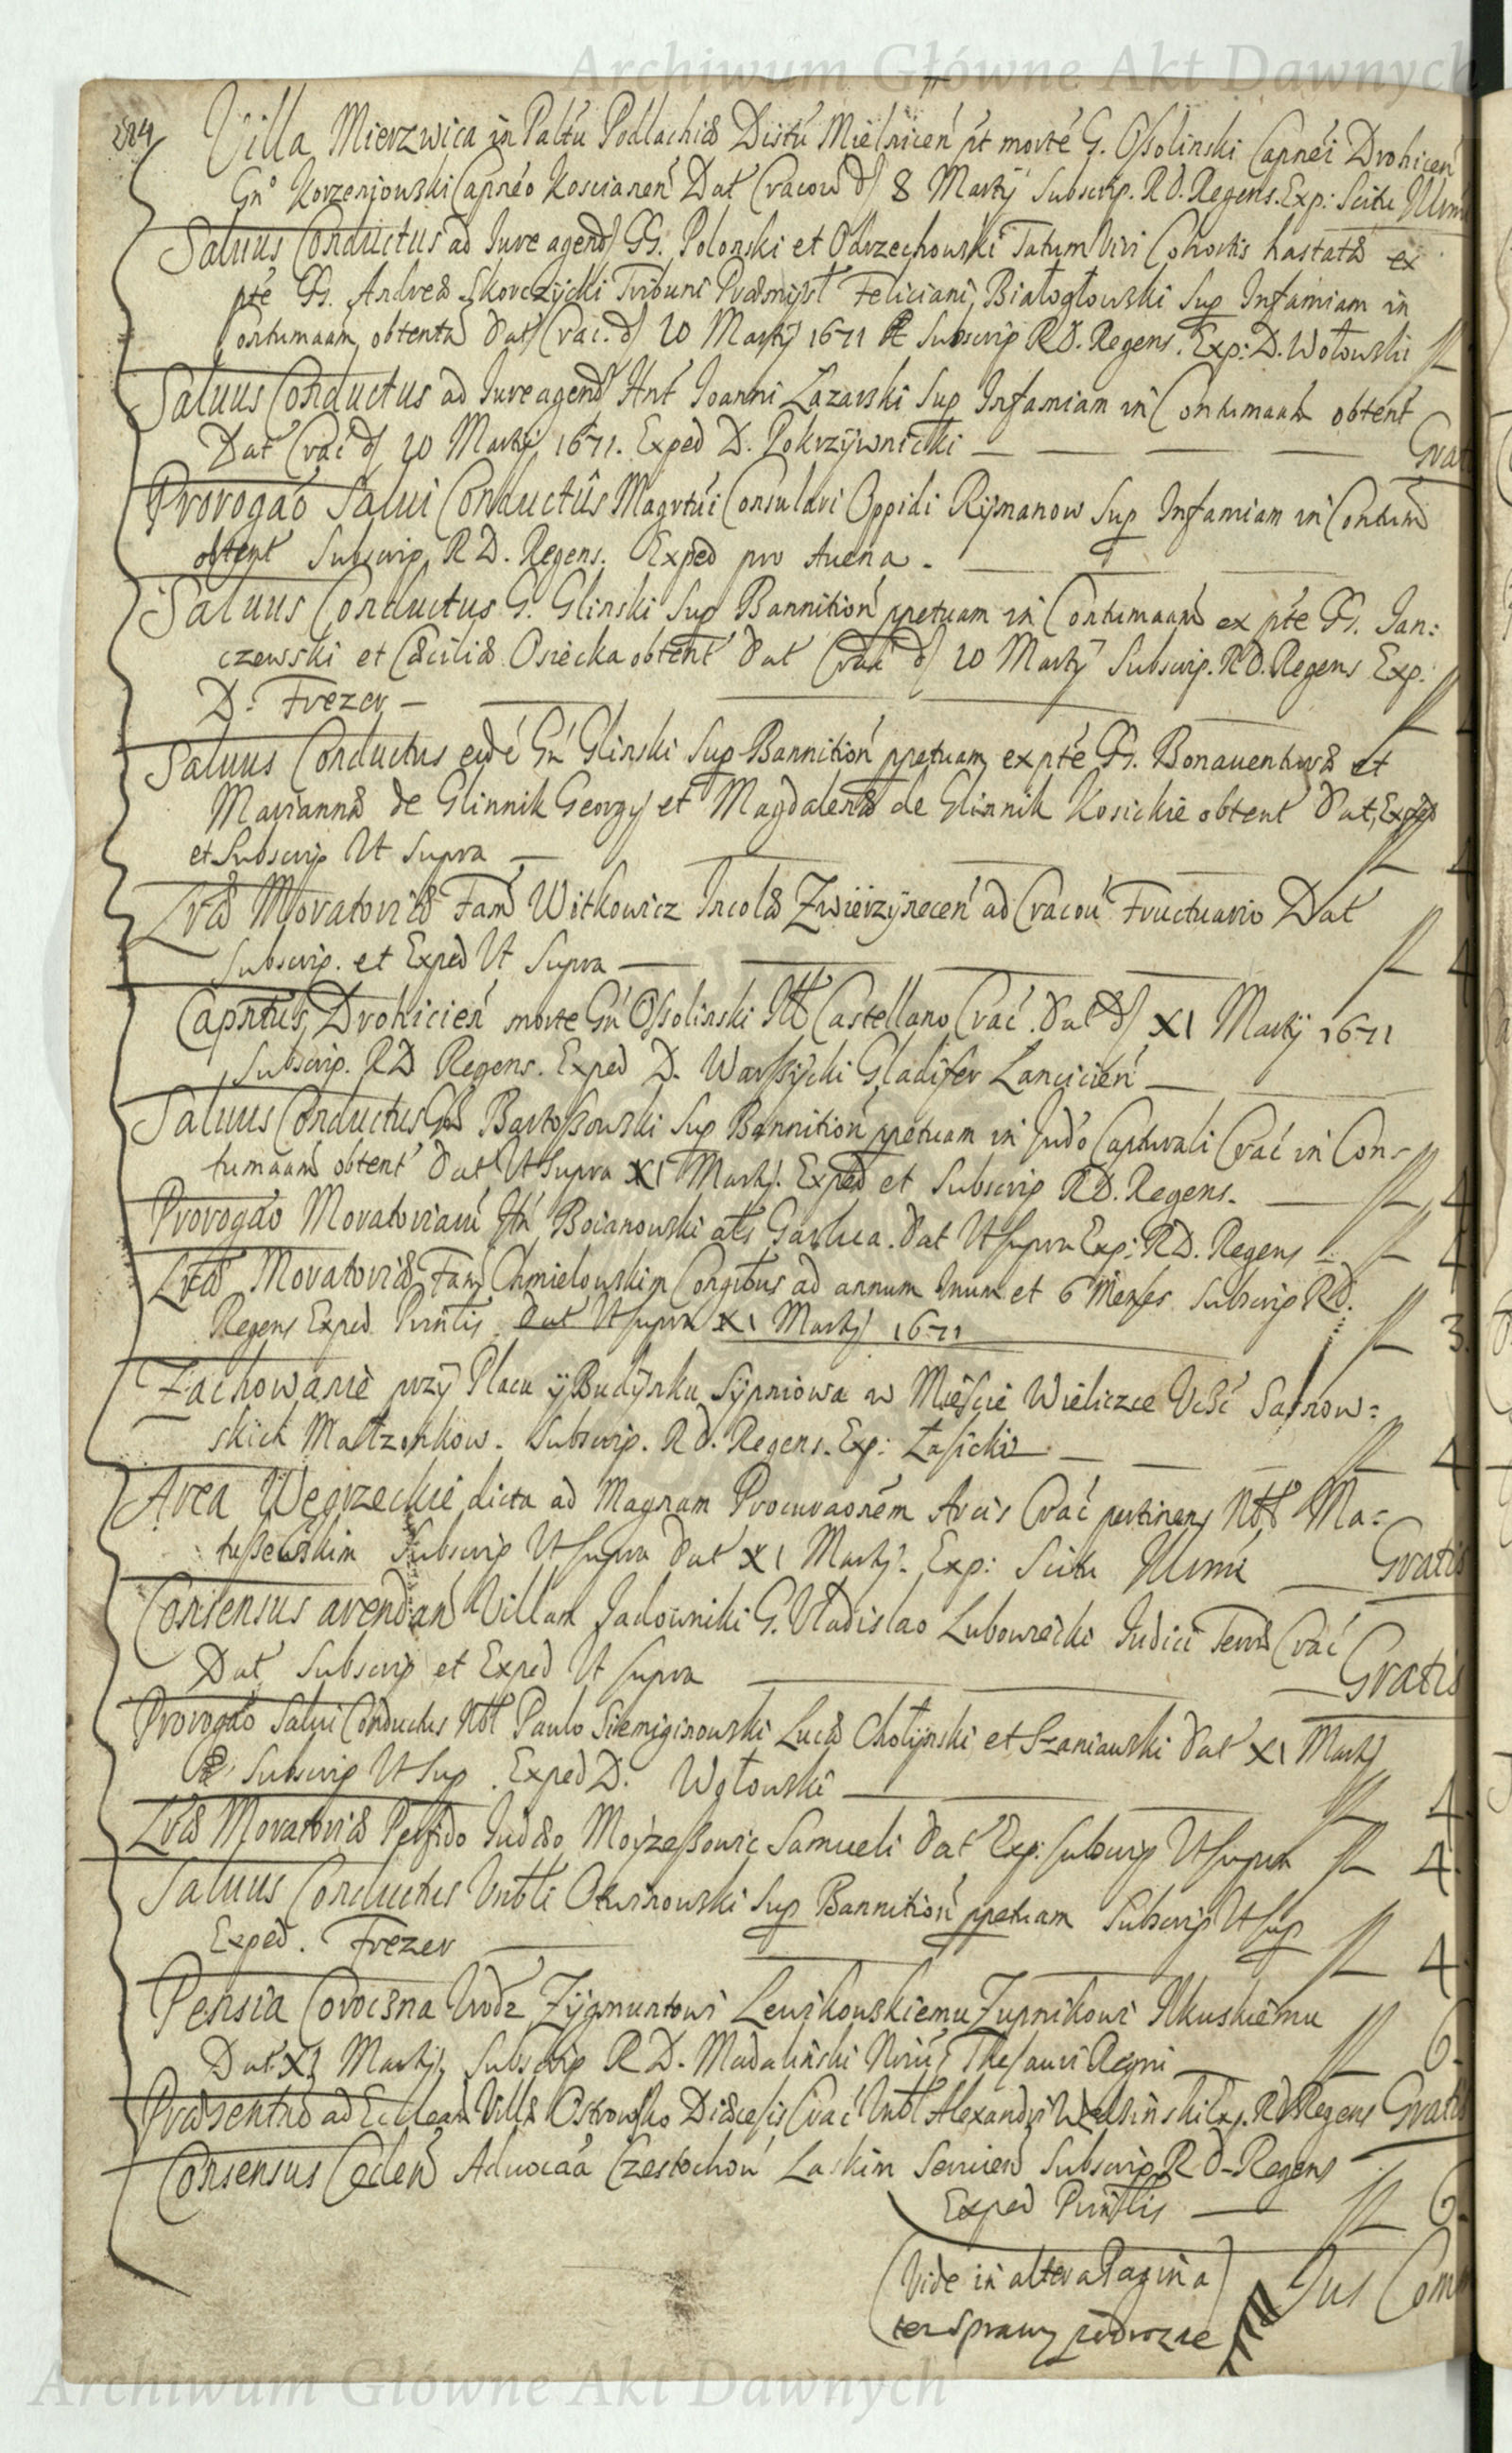 Archiwum Główne Akt Dawnych
284
Villa Mierzwica in Paltu Podlachiæ Distu Mielnicen pt morte G. Ossolinski Capnei Drohicen
Gno Korzeniowski Capneo Koscianen Dat Cracov d 8 Martij Subscrip. R D. Regens. Exp: Scitu Illmi
Saluus Conductus ad Iure agend GG. Polonski et Odrzechowski Tatum Viri Cohortis hastatæ ex
pte GG. Andreæ Skorczycki Tribuni Præmisl Feliciani Białogłowski Sup Infamiam in
Contumaam obtentã Dat Crac. d 10 Martij 1671 Subscrip R D. Regens. Exp: D. Wołowski fl
Saluus Conductus ad Iure agend Hnt Ioanni Lazarski Sup Infamiam in Contumaam obtent
Dat Crac d 10 Martij 1671. Exped D. Pokrzywnicki Grat
Prorogao Salui Conductûs Magrtui Consulari Oppidi Rymanow Sup Infamiam in Contum
obtent Subscrip R D. Regens. Exped pro Auena.
Saluus Conductus G. Glinski Sup Bannition ppetuam in Contumaam ex pte GG. Jan:
czewski et Cæciliæ Osiecka obtent Dat Crac d 10 Martij Subscrip. R D. Regens Exp.
D. Frezer fl
Saluus Conductus eidé Gn Glinski Sup Bannition ppetuam ex pte GG. Bonauenturæ et
Mariannæ de Glinnik Georgy et Magdalenæ de Glinnik Kosickie obtent Dat, Exped
et Subscrip Ut Supra fl 4
Lræ Moratoriæ Fam Witkowicz Incolæ Zwierzynecen ad Cracou Fructuario Dat
Subscrip. et Exped Ut Supra fl 4
Capntus Drohicien morte Gn Ossolinski Ill Castellano Crac. Dat d XI Martij 1671
Subscrip. R D Regens. Exped D. Warszycki Gladifer Lancicien
Saluus Conductus Gd Bartoszowski Sup Bannition ppetuam in Judo Capturali Crac in Con-
tumaam obtent Dat Ut Supra XI Martij. Exped et Subscrip R D. Regens. fl 4
Prorogao Moratoriaru Hn Boianowski als Garluca. Dat Ut Supra Exp: R D. Regens fl 4
Lræ Moratoriæ Fam Chmielowskim Congibus ad annum unum et 6 Menses Subscrip R D.
Regens Exped Pmtis Dat Ut Supra XI Martij 1671 fl 3
Zachowanie przy Placu y Budynku Sypniowa w Mieście Wieliczce Ucśc Sasnow=
skich Małzonkow. Subscrip. R D. Regens. Exp: Łasicki fl 4
Area Węgrzeckie dicta ad Magnam Procuraonem Arcis Crac pertinens Nbl Ma=
tuszewskim Subscrip Ut Supra Dat XI Martij. Exp: Scitu Illmi Gratis
Consensus arendan Villam Jadowniki G. Vladislao Lubowiecki Iudici Terræ Crac
Dat Subscrip et Exped Ut Supra Gratis
Prorogao Salui Conductus Nbl Paulo Sieniginowski Lucæ Chotynski et Szaniawski Dat XI Martij
Subscrip Ut Sup. Exped D. Wołowski fl 4
Lræ Moratoriæ Perfido Iudæo Moyzeszowic Samueli Dat Exp: Subscrip Ut Supra fl 4.
Saluus Conductus Vnbli Otwinowski Sup Bannition ppetuam Subscrip Ut Sup
Exped. Frezer fl 4.
Pensia Coroczna Urodz Zygmuntowi Lewikowskiemu Zupnikowi Ilkuskiemu
Dat XI Martij. Subscrip R D. Madaliński Nrius Thesauri Regni fl 6.
Præsentao ad Eccleam Villæ Ostrowsko Diæcesis Crac Vnbl Alexandri Exp. R D Regens Gratis
Consensus Cedend Aduocaa Czestochou Laskim Seruien Subscrip R D. Regens
Exped Pmtlis fl 6.
(Vide in altera Pagina)
ten sprawy
Jus Comm
Archiwum Główne Akt Dawnych